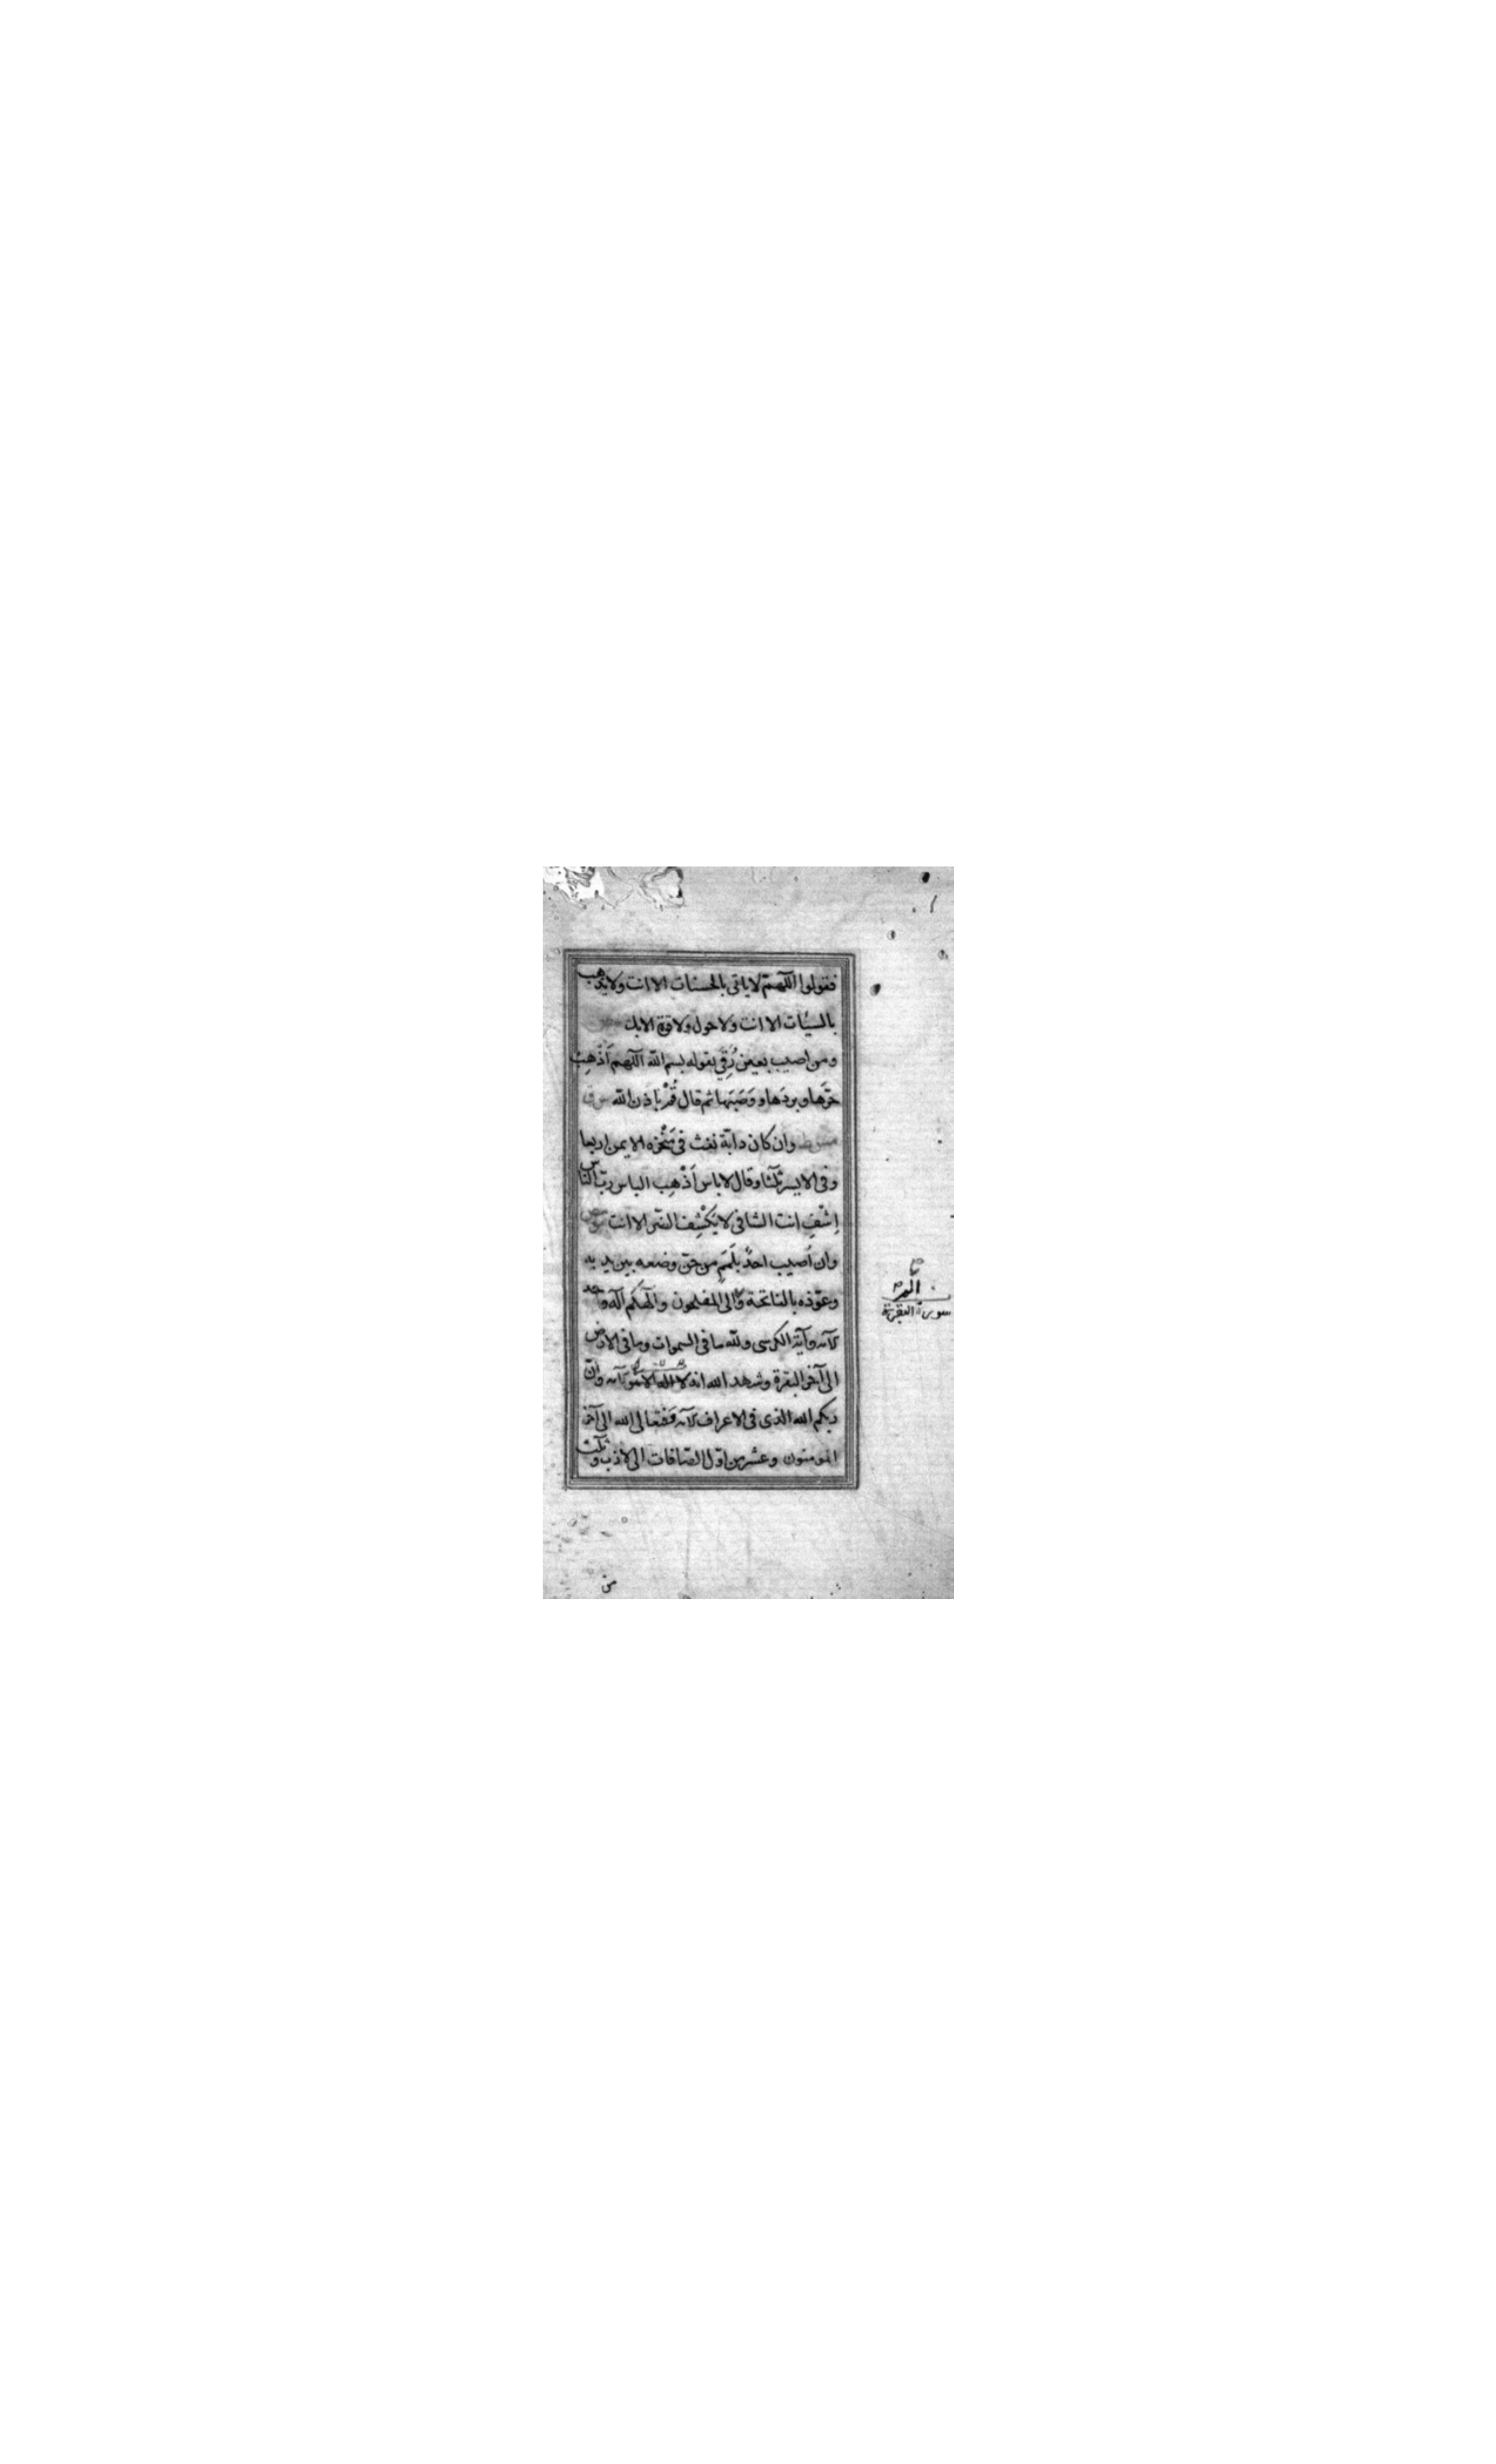 فقولوا اللهم لا ياتى بالحسنات الا انت ولا يذهب
بالسيّات الا انت ولا حول ولا قوة الا بك
ومن اصيب بعين رُقِيَ بقوله بسم الله اللهم اَذْهِبْ
حرّها وبردَها ووَصَبَها ثم قال قُمْ باذن الله س ق
وان كان دابّة نفث فى مَنْخِره الايمن اربعا
وفى الايسر ثلثا وقال لا باس اَذْهِب الباس ربّ الناس
اِشْفِ انت الشافى لا يَكْشِف الضر الا انت
وان اُصيب احدٌ بلَمَمٍ من جن وضعه بين يديه
وعوّذه بالفاتحة والم الى المفلحون والهكم اله واحد
الآيه وآية الكرسى ولله ما فى السموات وما فى الارض
الى آخر البقرة وشهد الله انه لا اله الا هو الآيه وانّ
ربكم الله الذى فى الاعراف الآيه وفتعالى الله الى آخر
المومنون وعشر من اوّل الصّافات الى لازب وثلث
الم
سورة البقرة
من